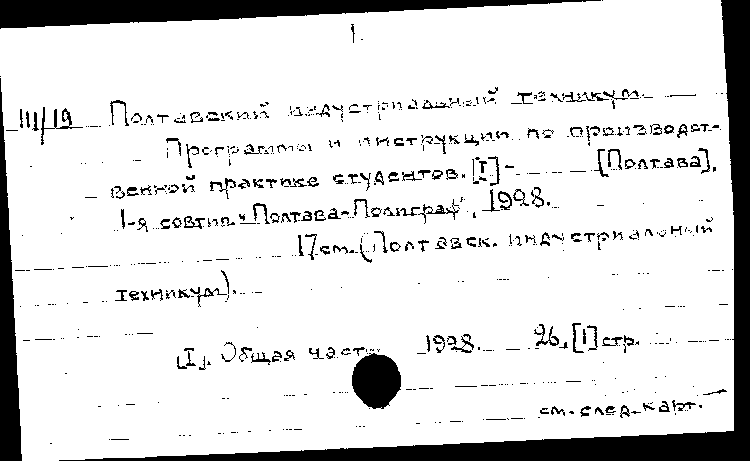 1.
III/19 Полтавский индустриальный техникум.
Программы и инструкции по производст-
венной практике студентов. [I] - [Полтава],
1-я совтип. "Полтава-Полиграф", 1928.
17 см. (Полтавск. индустриальный
техникум).
[I]. Общая часть 1928. 26, [1] стр.
см. след. карт.